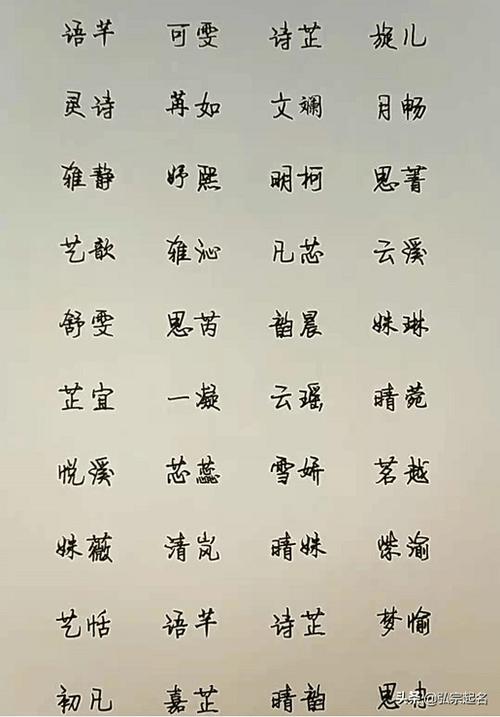 语芊 可雯 诗芷 旋儿
灵诗 苒如 文斓 月畅
雅静 妤熙 明柯 思菁
艺歆 雅沁 凡芯 云溪
舒雯 思芮 韵晨 姝琳
芷宜 一凝 云瑶 晴菀
悦溪 芯蕊 雪妍 茗越
姝薇 清岚 晴姝 紫渝
艺恬 语芊 诗芷 梦愉
初凡 嘉芷 晴韵 思
头条@弘宗起名